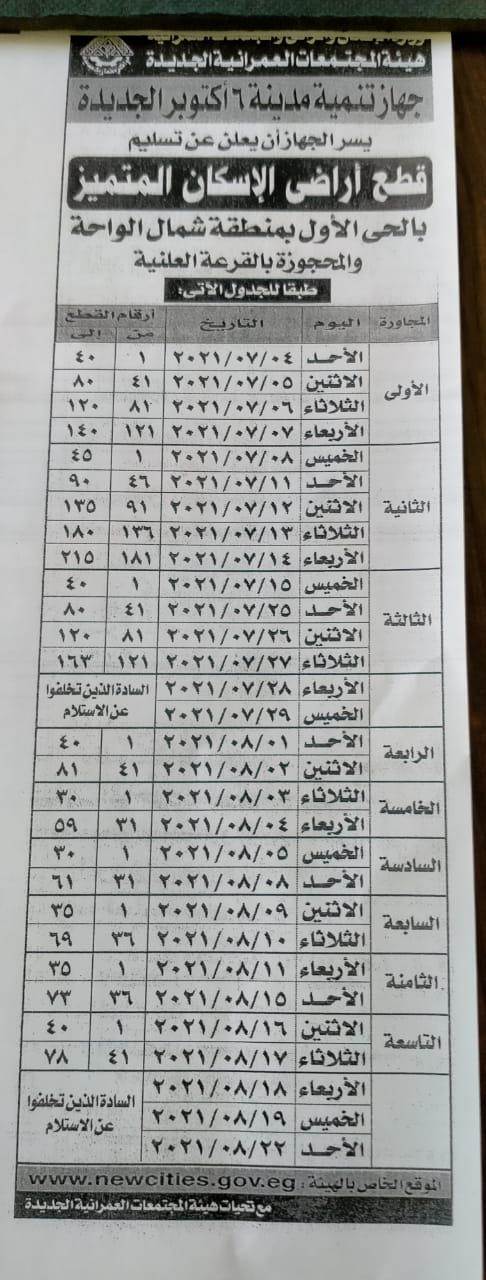 هيئة المجتمعات العمرانية الجديدة
جهاز تنمية مدينة ٦ أكتوبر الجديدة
يسر الجهاز أن يعلن عن تسليم
قطع أراضى الإسكان المتميز
بالحى الأول بمنطقة شمال الواحة
والمحجوزة بالقرعة العلنية
طبقا للجدول الآتى:
المجاورة اليوم التاريخ أرقام القطع
من إلى
الأولى الأحد ٢٠٢١/٠٧/٠٤ ١ ٤٠
الاثنين ٢٠٢١/٠٧/٠٥ ٤١ ٨٠
الثلاثاء ٢٠٢١/٠٧/٠٦ ٨١ ١٢٠
الأربعاء ٢٠٢١/٠٧/٠٧ ١٢١ ١٤٠
الثانية الخميس ٢٠٢١/٠٧/٠٨ ١ ٤٥
الأحد ٢٠٢١/٠٧/١١ ٤٦ ٩٠
الاثنين ٢٠٢١/٠٧/١٢ ٩١ ١٣٥
الثلاثاء ٢٠٢١/٠٧/١٣ ١٣٦ ١٨٠
الأربعاء ٢٠٢١/٠٧/١٤ ١٨١ ٢١٥
الثالثة الخميس ٢٠٢١/٠٧/١٥ ١ ٤٠
الأحد ٢٠٢١/٠٧/٢٥ ٤١ ٨٠
الاثنين ٢٠٢١/٠٧/٢٦ ٨١ ١٢٠
الثلاثاء ٢٠٢١/٠٧/٢٧ ١٢١ ١٦٣
الأربعاء ٢٠٢١/٠٧/٢٨ السادة الذين تخلفوا
الخميس ٢٠٢١/٠٧/٢٩ عن الاستلام
الرابعة الأحد ٢٠٢١/٠٨/٠١ ١ ٤٠
الاثنين ٢٠٢١/٠٨/٠٢ ٤١ ٨١
الخامسة الثلاثاء ٢٠٢١/٠٨/٠٣ ١ ٣٠
الأربعاء ٢٠٢١/٠٨/٠٤ ٣١ ٥٩
السادسة الخميس ٢٠٢١/٠٨/٠٥ ١ ٣٠
الأحد ٢٠٢١/٠٨/٠٨ ٣١ ٦١
السابعة الاثنين ٢٠٢١/٠٨/٠٩ ١ ٣٥
الثلاثاء ٢٠٢١/٠٨/١٠ ٣٦ ٦٩
الثامنة الأربعاء ٢٠٢١/٠٨/١١ ١ ٣٥
الأحد ٢٠٢١/٠٨/١٥ ٣٦ ٧٣
التاسعة الاثنين ٢٠٢١/٠٨/١٦ ١ ٤٠
الثلاثاء ٢٠٢١/٠٨/١٧ ٤١ ٧٨
الأربعاء ٢٠٢١/٠٨/١٨ السادة الذين تخلفوا
الخميس ٢٠٢١/٠٨/١٩ عن الاستلام
الأحد ٢٠٢١/٠٨/٢٢
الموقع الخاص بالهيئة : www.newcities.gov.eg
مع تحيات هيئة المجتمعات العمرانية الجديدة